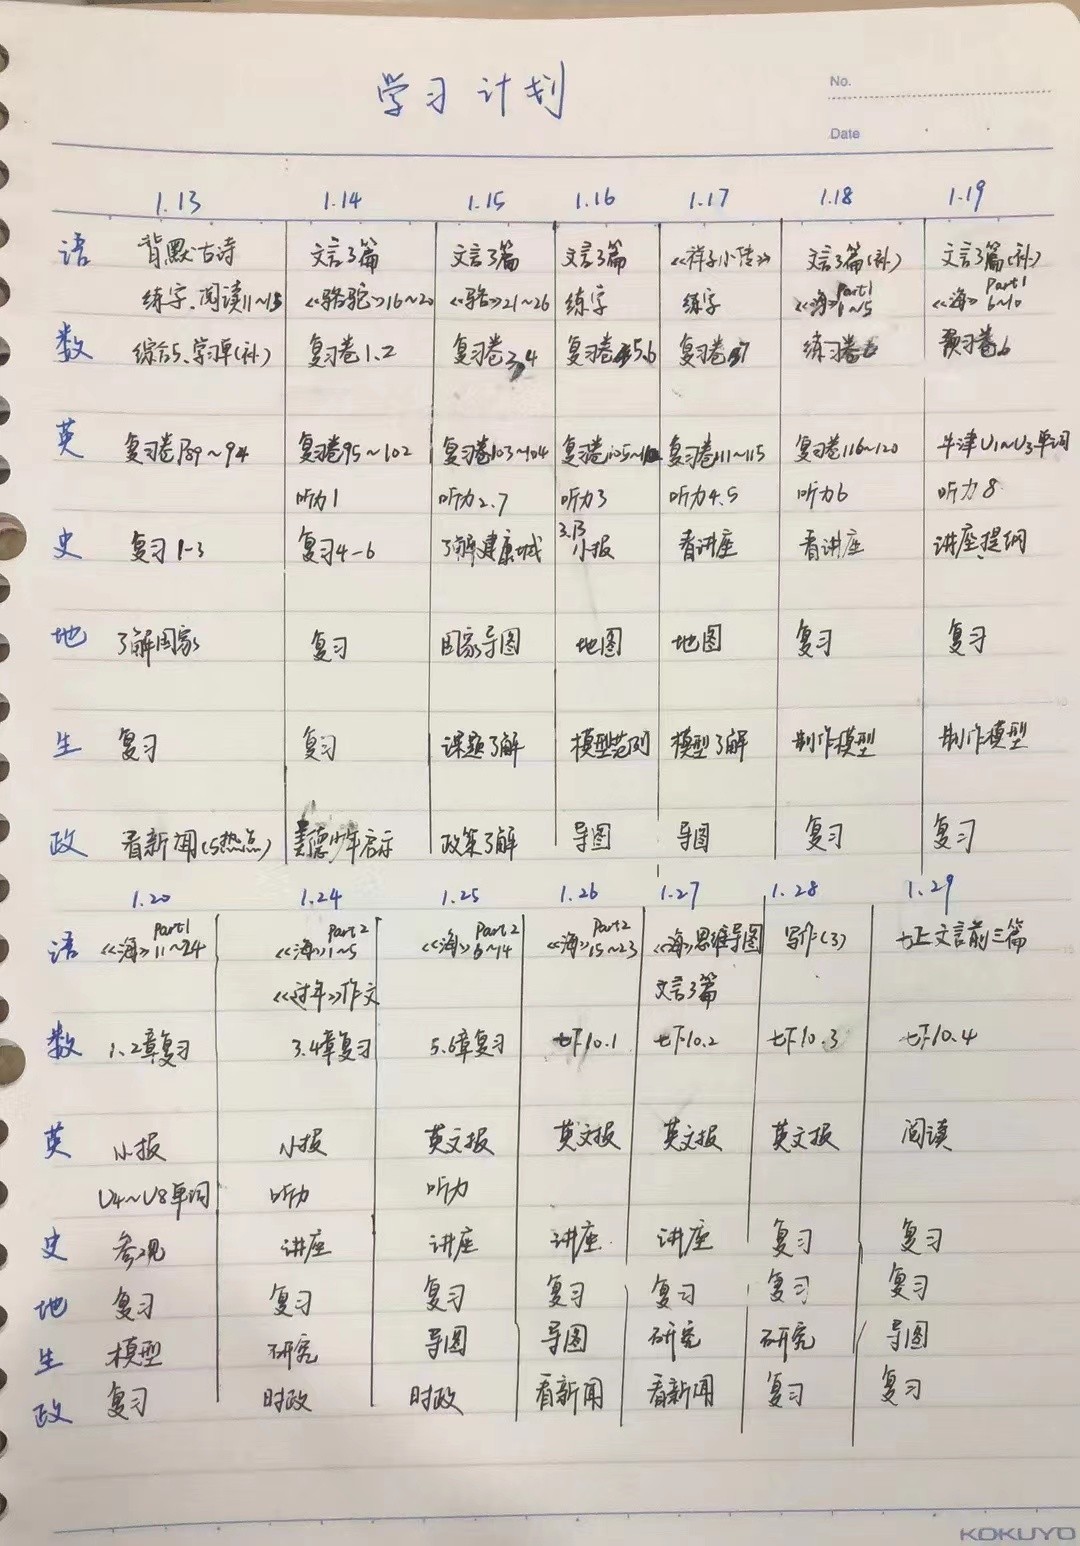 学习计划
No.
Date
1.13 1.14 1.15 1.16 1.17 1.18 1.19
语 背默古诗 文言3篇 文言3篇 文言3篇 《祥子小传》 文言3篇(补) 文言3篇(补)
练字、阅读11~15 《骆驼》16~20 《骆》21~26 练字 练字 《海》Part1 1~5 《海》Part1 6~10
数 综合5、学习单(补) 复习卷1.2 复习卷3,4 复习卷5.6 复习卷7 练习卷6 预习卷6
英 复习卷P89~94 复习卷95~102 复习卷103~104 复习卷105~ 复习卷111~115 复习卷116~120 牛津U1~U3单词
听力1 听力2.7 听力3 听力4.5 听力6 听力8
史 复习1-3 复习4-6 了解建康城 小报 看讲座 看讲座 讲座提纲
地 了解国家 复习 国家导图 地图 地图 复习 复习
生 复习 复习 课题了解 模型范例 模型了解 制作模型 制作模型
政 看新闻(5热点) 美德少年启示 政策了解 导图 导图 复习 复习
1.20 1.24 1.25 1.26 1.27 1.28 1.29
语 《海》Part1 11~24 《海》Part2 1~5 《海》Part2 6~14 《海》Part2 15~23 《海》思维导图 写作(3) 七上文言前三篇
《过年》作文 文言3篇
数 1.2章复习 3.4章复习 5.6章复习 七下10.1 七下10.2 七下10.3 七下10.4
英 小报 小报 英文报 英文报 英文报 英文报 阅读
U4~U8单词 听力 听力
史 参观 讲座 讲座 讲座 讲座 复习 复习
地 复习 复习 复习 复习 复习 复习 复习
生 模型 研究 导图 导图 研究 研究 导图
政 复习 时政 时政 看新闻 看新闻 复习 复习
KOKUYO